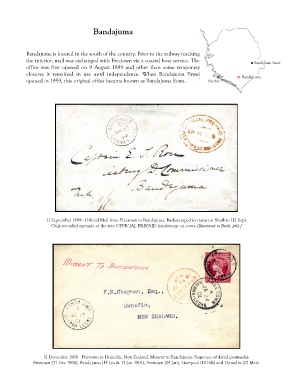 Bandajuma
Bandajuma is located in the south of the country. Prior to the railway reaching
the interior, mail was exchanged with Freetown via a coastal boat service. The
office was first opened on 9 August 1899 and other than some temporary
closures it remained in use until independence. When Bandajuma Yawei
opened in 1959, this original office became known as Bandajuma Sowa.
Bandajuma Yawei
Bandajuma
Captain E. S. Rose
Acting D. Commissioner
Bandajuma
11 September 1899 - Official Mail from Freetown to Bandajuma. Backstamped in transit at Sherbro (12 Sept).
Only recorded example of the red OFFICIAL PREPAID handstamp on cover
MISSENT TO BANDAJUMA
F.R. Chapman, Esq.,
Dunedin,
NEW ZEALAND.
31 December 1900 - Freetown to Dunedin, New Zealand. Missent to Bandajuma. Sequence of dated postmarks:
Freetown (31 Dec 1900), Bandajuma (14 Jan & 17 Jan 1901), Freetown (24 Jan), Liverpool (10 Feb) and Dunedin (27 Mar).